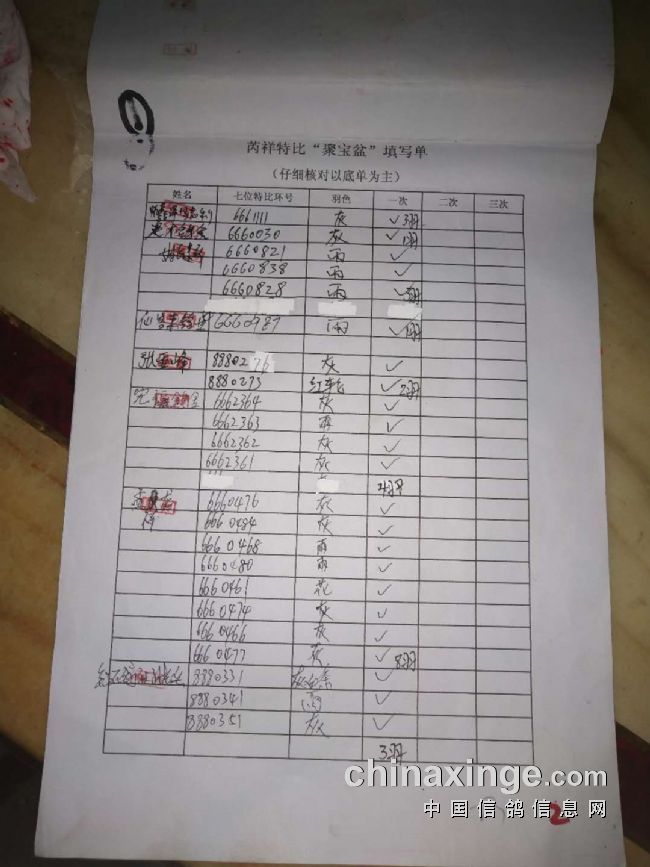 芮祥特比“聚宝盆”填写单
（仔细核对以底单为主）
姓名 七位特比环号 羽色 一次 二次 三次
6661111 灰 ✓ 3羽
6660030 灰 ✓ 1羽
6660821 雨 ✓
6660838 雨 ✓
6660828 雨 ✓ 3羽
6660787 雨 ✓ 1羽
8880276 灰 ✓
8880273 红轮 ✓ 2羽
6662364 灰 ✓
6662363 雨 ✓
6662362 灰 ✓
6662361 灰 ✓
4羽
6660476 灰 ✓
6660484 灰 ✓
6660468 雨 ✓
6660480 雨 ✓
6660461 花 ✓
6660474 灰 ✓
6660466 灰 ✓
6660477 灰 ✓ 8羽
8880331 灰白条 ✓
8880341 雨 ✓
8880351 灰 ✓
3羽
2
chinaxinge.com
中国信鸽信息网